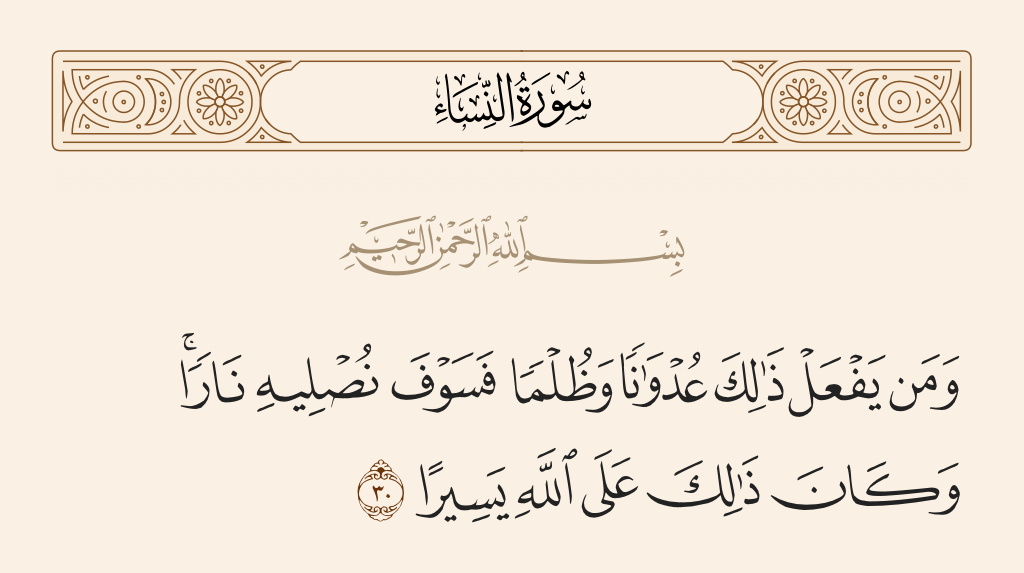 سُورَةُ النِّسَاءِ
بِسْمِ ٱللَّهِ ٱلرَّحْمَٰنِ ٱلرَّحِيمِ
وَمَن يَفْعَلْ ذَٰلِكَ عُدْوَٰنًا وَظُلْمًا فَسَوْفَ نُصْلِيهِ نَارًا ۚ
وَكَانَ ذَٰلِكَ عَلَى ٱللَّهِ يَسِيرًا ٣٠